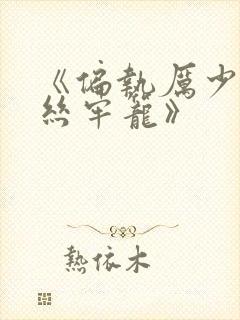 《偏執厲少
絲牢籠》
熱依木